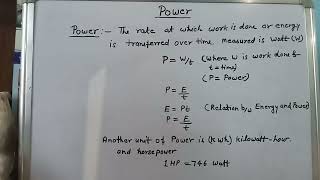 Power
Power:- The rate at which work is done or energy
is transferred over time measured is watt (W)
P = W/t (Where W is work done &
t = time)
(P = Power)
P = E/t
E = Pt (Relation b/w Energy and Power)
P = E/t
Another unit of Power is (kwh) kilowatt-hour.
and horsepower
1 HP = 746 watt